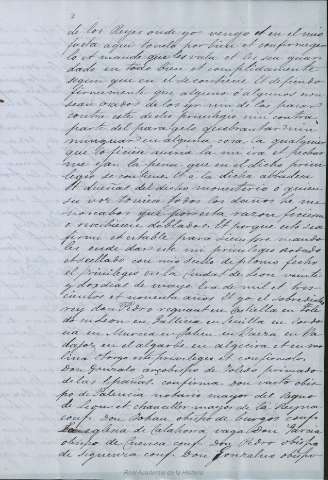 2
de los Reyes onde yo vengo et en el mio
fasta aqui tovelo por bien et confirmogelo
lo et mando que les vala et les sea guar
dado en todo bien et complidamente
segun que en el se contiene. Et defiendo
firmemente que alguno o algunos non
sean osados de les yr nin de les pasar
contra este dicho privilegio nin contra
parte del para gelo quebrantar nin
minguar en alguna cosa ca qualquier
que lo ficiese avria la mi ira et pechar
me yan la pena que en el dicho privi
legio se contiene. Et a la dicha abadesa
et dueñas del dicho monesterio o quien
su voz toviese todos los daños et me
noscabos que por esta razon ficiesen
o recibiesen doblados. Et porque esto sea
firme et estable para siempre mandé
les ende dar este mi privilegio rodado
et seellado con mio sello de plomo fecho
el privilegio en la cibdat de Leon veinte
y dos dias de mayo era de mil et tres
cientos et noventa años. Et yo el sobredicho
rey don Pedro regnant en Castiella en Tole
do en Leon en Gallicia en Sevilla en Cordo
va en Murcia en Jahen en Baeza en Ba
dajoz en el algarbe en algecira et en mo
lina otorgo este privilegio et confirmolo.
Don Gonzalo arzobispo de Toledo primado
de las Españas, confirma. Don Vasco obis
po de Palencia notario mayor del Regno
de Leon et chanciller mayor de la Reyna
conf. Don Johan obispo de Burgos conf.
La eglesia de Calahorra vaga. Don Garcia
obispo de Cuenca conf. Don Pedro obispo
de Siguenza conf. Don Gonzalvo obispo
Real Academia de la Historia